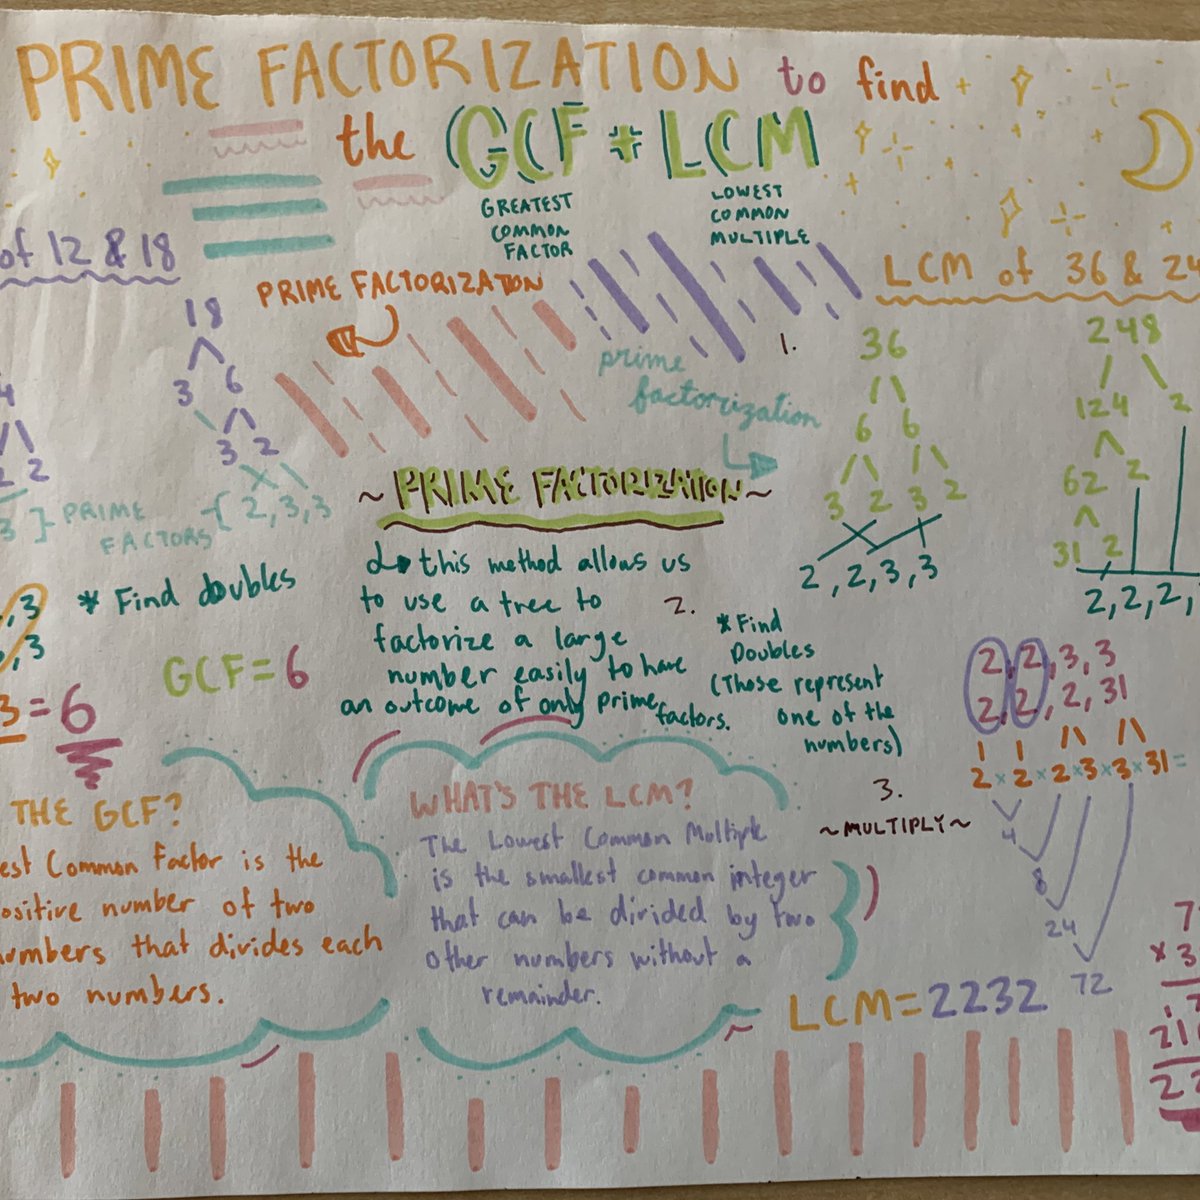 PRIME FACTORIZATION to find
the GCF + LCM
GREATEST
COMMON
FACTOR
LOWEST
COMMON
MULTIPLE
of 12 & 18
18
3 6
3 2
2 2
3 } PRIME
FACTORS
{ 2,3,3
* Find doubles
GCF=6
3=6
PRIME FACTORIZATION
prime
factorization
~PRIME FACTORIZATION~
this method allows us
to use a tree to
factorize a large
number easily to have
an outcome of only prime
factors.
THE GCF?
Common Factor is the
number of two
that divides each
two numbers.
WHAT'S THE LCM?
The Lowest Common Multiple
is the smallest common integer
that can be divided by two
other numbers without a
remainder.
LCM of 36 & 24
1.
36
6 6
3 2 3 2
2,2,3,3
248
124 2
62 2
31 2
2,2,2,
2.
*Find
Doubles
(Those represent
one of the
numbers)
2,2,3,3
2,2,2,31
2×2×2×3×3×31=
3.
~MULTIPLY~
4
8
24
72
LCM=2232
7
×3